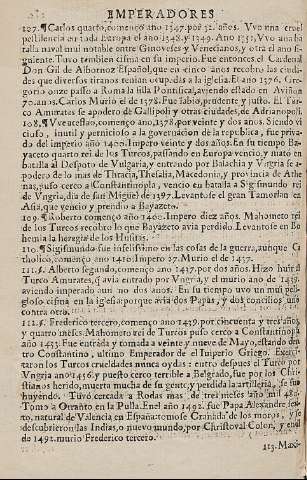 EMPERADORES
107. ¶ Carlos quarto, començo año 1347. por 32. años. Vvo vna cruel
pestilencia en toda Europa el año 1348. y 1349. Año 1353. Vvo vna ba
talla naval mui notable entre Ginoveses y Venecianos, y otra el año si-
guiente. Tuvo tambien cisma en su imperio. Fue entonces el Cardenal
Don Gil de Albornoz Español, que en cinco años recobro las ciuda
des que diversos tiranos tenian ocupadas a la iglesia. El año 1376. Gre
gorio onze passo a Roma la silla Pontifical, aviendo estado en Aviñon
70. anos. Carlos Murio el de 1378. Fue sabio, prudente y justo. El Tur
co Amurates se apodero de Gallipoli y otras ciudades, de Adrianopoli.
108. ¶ Vvenceslao, començo año, 1378. por veinte y dos años. Siendo vi
cioso, inutil y pernicioso a la governacion de la republica, fue priva-
do del imperio año 1400. Impero veinte y dos años. En su tiempo Ba-
yaceto quarto rei de los Turcos, passando en Europa vencio, y mato en
batalla al Despoto de Vulgaria, y entrando por Balachia y Vngria se a-
podero de lo mas de Thracia, Thesalia, Macedonia, y provincia de Athe
nas, puso cerco a Constantinopla, vencio en batalla a Sigismundo rei
de Vngria, dia de san Miguel de 1397. Levantose el gran Tamorlan en
Asia, que vencio y prendio a Bayaceto.
109. ¶ Roberto començo año 1400. Impero diez años. Mahometo rei
de los Turcos recobro lo que Bayazeto avia perdido. Levantose en Bo
hemia la heregia de los Husitas.
110. ¶ Sigismundo fue infelissimo en las cosas de la guerra, aunque Ca
tholico, començo año 1410. Impero 27. Murio el de 1437.
111. ¶. Alberto segundo, començo año 1437. por dos años. Hizo huir al
Turco Amurates, q̃ avia entrado por Vngria, y el murio año de 1439.
aviendo imperado aun no dos años. En su tiempo uvo un mui pe-
ligroso cisma en la iglesia: porque avia dos Papas, y dos concilios uno
contra otro.
112. ¶. Frederico tercero, començo año 1439. por cincuenta y tres años
y quatro meses. Mahometo rei de Turcos puso cerco a Constantinopla
año 1453. Fue entrada y tomada a veinte y nueve de Mayo, estando den
tro Constantino, ultimo Emperador de el Imperio Griego. Execu-
taron los Turcos crueldades nunca oydas: entro despues el Turco por
Vngria ano 1456. y puesto cerco terrible a Belgrado, fue por los Chris-
tianos herido, muerta mucha de su gente, y perdida la artilleria, se fue
huyendo. Tuvo cercada a Rodas mas de tres meses año mil 480.
Tomo a Otranto en la Pulla. En el año 1492. fue Papa Alexandre sex-
to, natural de Valencia en España: tomose Granada de los moros, y se
descubrieron las Indias, o nuevo mundo, por Christoval Colon, y en el
de 1492. murio Frederico tercero.
113. Maxi-